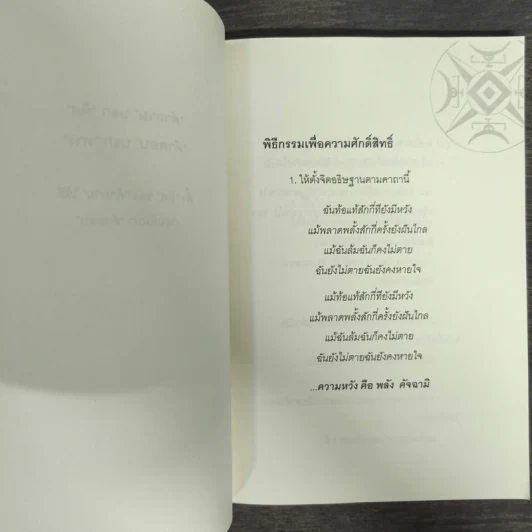 พิธีกรรมเพื่อความศักดิ์สิทธิ์
1. ให้ตั้งจิตอธิษฐานตามคาถานี้
ฉันท้อแท้สักกี่ทียังมีหวัง
แม้พลาดพลั้งสักกี่ครั้งยังฝันไกล
แม้ฉันล้มฉันก็คงไม่ตาย
ฉันยังไม่ตายฉันยังคงหายใจ
แม้ท้อแท้สักกี่ทียังมีหวัง
แม้พลาดพลั้งสักกี่ครั้งยังฝันไกล
แม้ฉันล้มฉันก็คงไม่ตาย
ฉันยังไม่ตายฉันยังคงหายใจ
...ความหวัง คือ พลัง คัจฉามิ